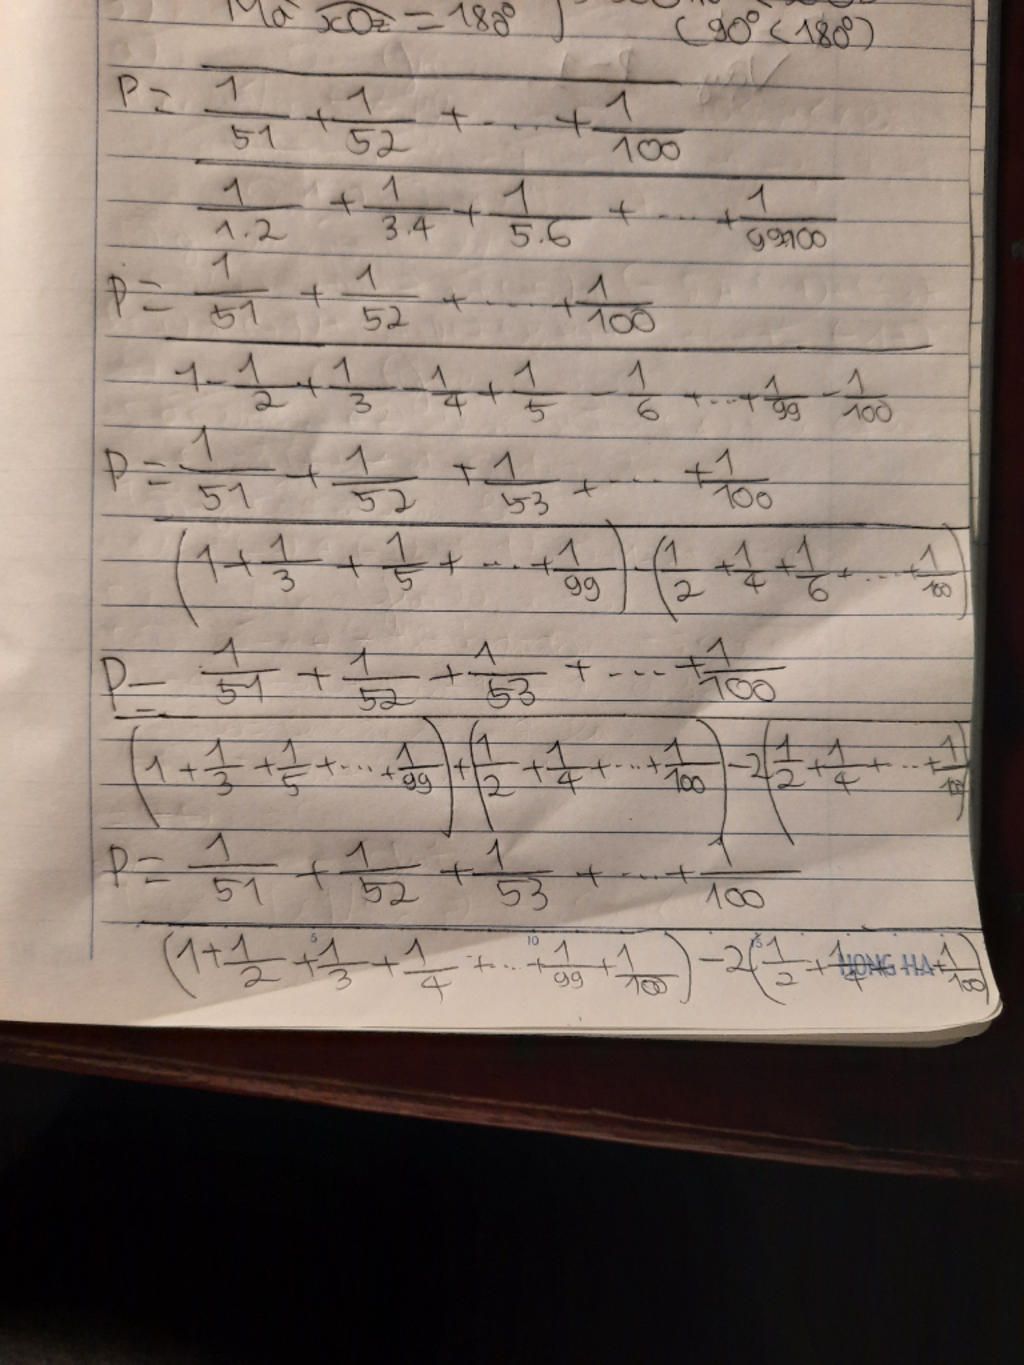 Mà xOz = 180° }
(90° < 180°)
P = 1/51 + 1/52 + .... + 1/100
1/1.2 + 1/3.4 + 1/5.6 + .... + 1/99.100
P = 1/51 + 1/52 + .... + 1/100
1 - 1/2 + 1/3 - 1/4 + 1/5 - 1/6 + ... + 1/99 - 1/100
P = 1/51 + 1/52 + 1/53 + .... + 1/100
(1 + 1/3 + 1/5 + .... + 1/99) - (1/2 + 1/4 + 1/6 + .... + 1/100)
P = 1/51 + 1/52 + 1/53 + .... + 1/100
(1 + 1/3 + 1/5 + ... + 1/99) + (1/2 + 1/4 + ... + 1/100) - 2(1/2 + 1/4 + ... + 1/100)
P = 1/51 + 1/52 + 1/53 + ... + 1/100
(1 + 1/2 + 1/3 + 1/4 + ... + 1/99 + 1/100) - 2(1/2 + 1/4 + 1/100)
5 10 15 HONG HA